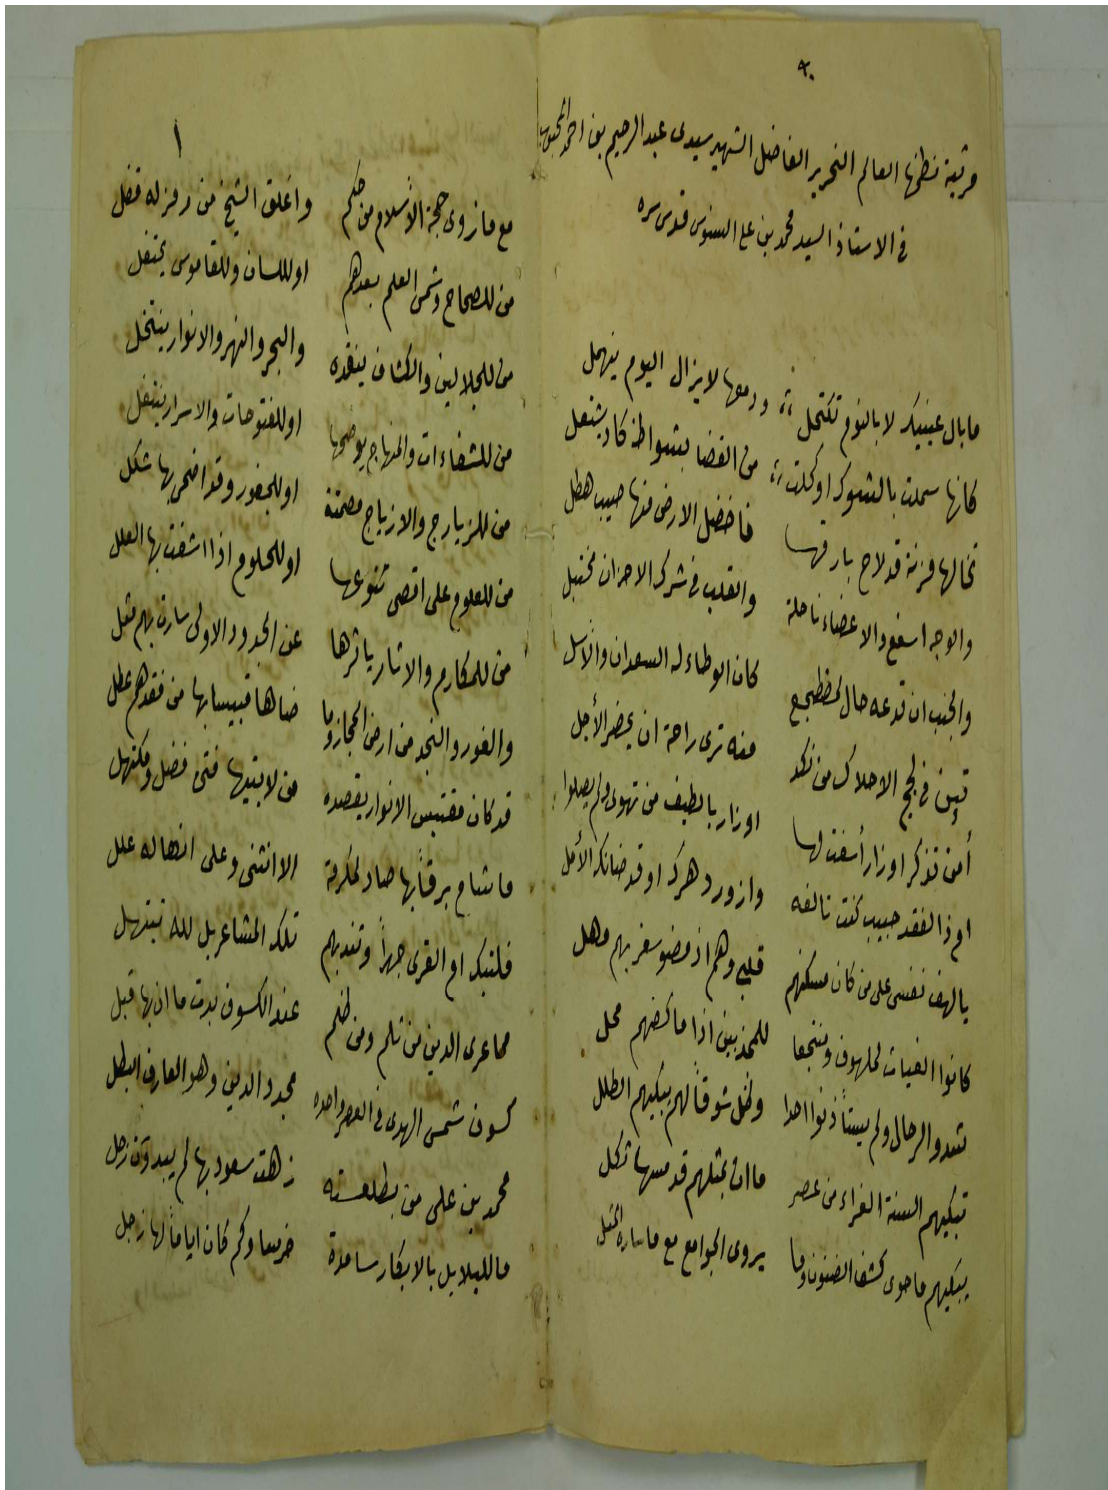 مرثية نظمها العالم النحرير الفاضل الشهير سيدى عبدالرحيم بن احمد المحبوب
فى الاستاذ السيد محمد بن على السنوسى قدس سره
مابال عينيك لا بالنوم تكتحل ودمعها لايزال اليوم ينهمل
كانها سملت بالشوك او كحلت من الغضا بشواظ كاد يشتعل
تخالها مزنة قد لاح بارقها فاخضل الارض منها صيب هطل
والوجه اسفع والاعضاء ناحلة والقلب فى شرك الاحزان مختبل
والجنب ان تدعه حال لمضطجع كان الوطاء له السعدان والاسل
فى لجج الاحلاك من نكد منه ترى راحة ان يحضر الأجل
أمن تذكر اوزار أسفت لها اوزار بالطيف من تهوى ولم يصلوا
ام ذا لفقد حبيب كنت تالفه وازور دهرك او قد خانك الأمل
يالهف نفسى على من كان مسكنهم قلبى وهم اذ مضو سفر بهم وهل
كانوا الغياث لملهوف ومنتجعا للمجذبين اذا ما عضهم محل
شدو الرحال ولم ذنوا احدا ولمل شوقاً لهم يبكيهم الطلل
تبكيهم السنة الغراء من عصر ما ان بمثلهم قد مسها ثكل
يبكيهم ما حوى كشف الظنون وما يروى الجوامع مع
١
مع ما روى حجة الأسلام من حكم واغلق الشيخ من رمز له قفل
من للصحاح وشمس العلم بعدهم او للسان وللقاموس يحتفل
من للجلالين والكشاف ينقده والبحر والنهر والانوار ينتخل
من للشفاءات والمنهاج يوضحها او للفتوحات والاسرار ينتقل
من للزيارج والازياج مصمتة او للجفور وقد اضحى بها شكل
من للعلوم على اقصى تنوعها او للحلوم اذا اشفت بها العلل
من للمكارم والاثار ياثرها عن الجدود الاولى سارت بهم مثل
والغور والنجد من ارض الحجاز وما ضاها قبيسا بها من فقدهم عطل
قد كان مقتبس الانوار يقصده من لابتيها فتى فضل ومكتهل
ما شام برقاً بها صاد لمكرمة الا انثنى وعلى انهاله علل
فلتبك ام القرى جهراً وتندبهم تلك المشاعر بل لله تبتهل
مما عرى الدين من ثلم ومن ظلم عند الكسوف بدت ما ان بها قبل
كسوف شمس الهدى فى العصر واحده مجدد الدين وهو العارف البطل
محمد بن على من بطلعته زهت سعود بها لم يبد زحل
ما للبلابل بالابكار سامدة خرسا وكم كان اياماً لها زجل